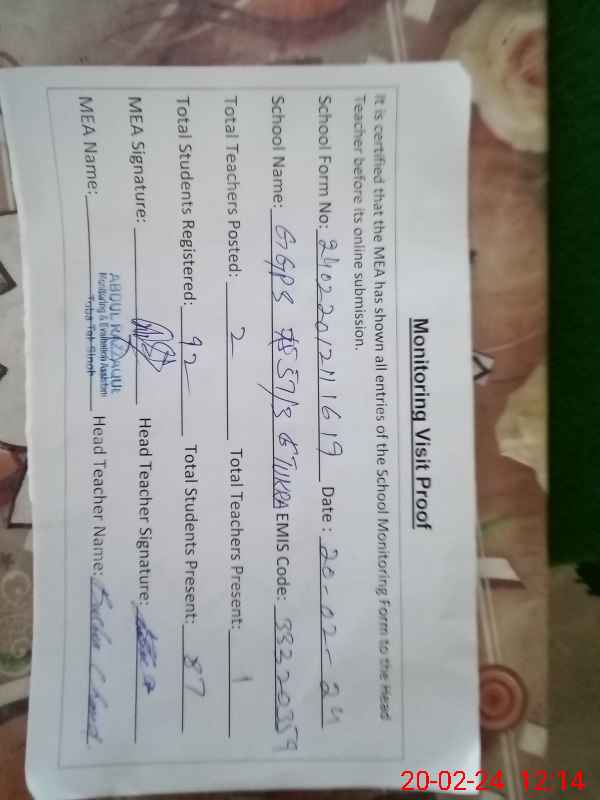 Monitoring Visit Proof
It is certified that the MEA has shown all entries of the School Monitoring Form to the Head
Teacher before its online submission.
School Form No: 24022012111619 Date : 20-02-24
School Name: GGPS 57/3 TUKRA EMIS Code: 33220359
Total Teachers Posted: 2 Total Teachers Present: 1
Total Students Registered: 92 Total Students Present: 87
MEA Signature: Head Teacher Signature:
ABDUL RAZZAQUE
Monitoring & Evaluation Assistant
Toba Tek Singh
MEA Name: Head Teacher Name:
20-02-24 12:14